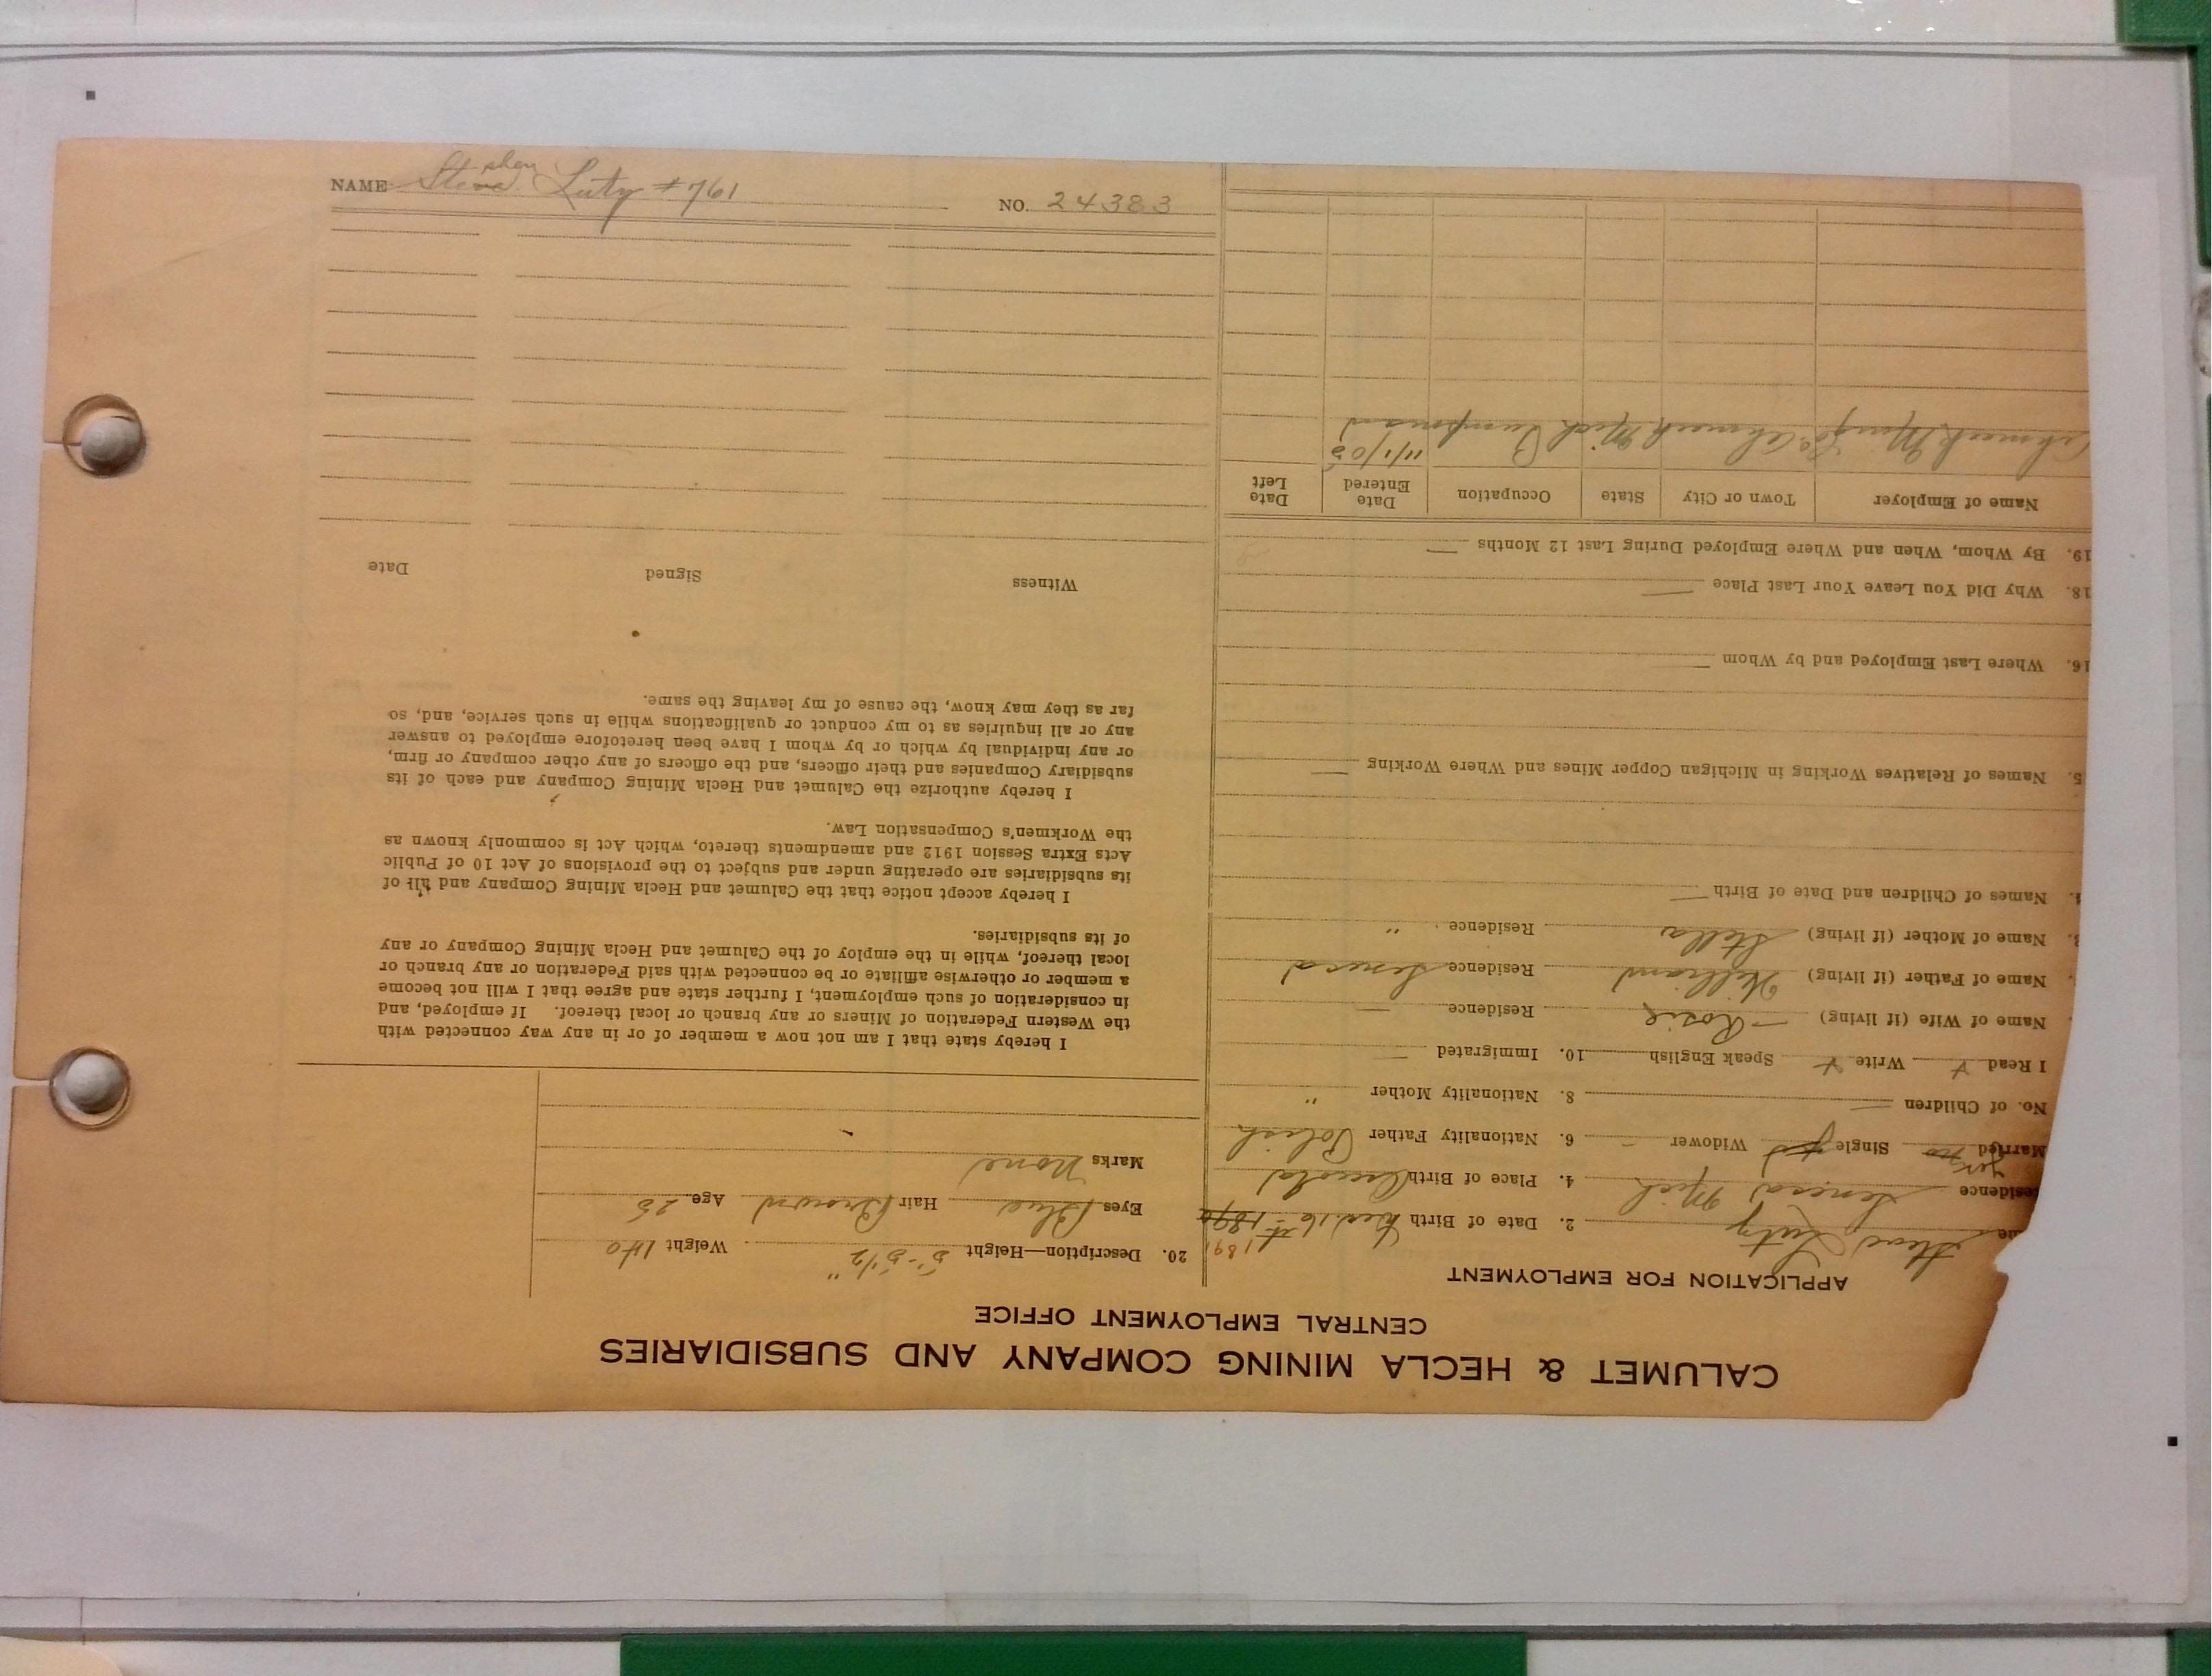 NAME Stephen Luty #761 NO. 24383
CALUMET & HECLA MINING COMPANY AND SUBSIDIARIES
CENTRAL EMPLOYMENT OFFICE
APPLICATION FOR EMPLOYMENT
me Steve Luty 2. Date of Birth Dec. 16th 1890 1891
Residence Seneca Mich 4. Place of Birth
yes
Married no Single yes Widower — 6. Nationality Father Polish
No. of Children — 8. Nationality Mother "
I Read + Write + Speak English 10. Immigrated —
Name of Wife (if living) — Rosie Residence —
Name of Father (if living) William Residence Seneca
3. Name of Mother (if living) Stella Residence "
4. Names of Children and Date of Birth —
5. Names of Relatives Working in Michigan Copper Mines and Where Working —
16. Where Last Employed and by Whom —
18. Why Did You Leave Your Last Place —
19. By Whom, When and Where Employed During Last 12 Months —
Name of Employer Town or City State Occupation Date Entered Date Left
Ahmeek Mining Co. Ahmeek Mich Pumpman 11/1/05
20. Description—Height 5'-5 1/2" Weight 140
Eyes Blue Hair Brown Age 25
Marks None
I hereby state that I am not now a member of or in any way connected with
the Western Federation of Miners or any branch or local thereof. If employed, and
in consideration of such employment, I further state and agree that I will not become
a member or otherwise affiliate or be connected with said Federation or any branch or
local thereof, while in the employ of the Calumet and Hecla Mining Company or any
of its subsidiaries.
I hereby accept notice that the Calumet and Hecla Mining Company and all of
its subsidiaries are operating under and subject to the provisions of Act 10 of Public
Acts Extra Session 1912 and amendments thereto, which Act is commonly known as
the Workmen's Compensation Law.
I hereby authorize the Calumet and Hecla Mining Company and each of its
subsidiary Companies and their officers, and the officers of any other company or firm,
or any individual by which or by whom I have been heretofore employed to answer
any or all inquiries as to my conduct or qualifications while in such service, and, so
far as they may know, the cause of my leaving the same.
Witness Signed Date